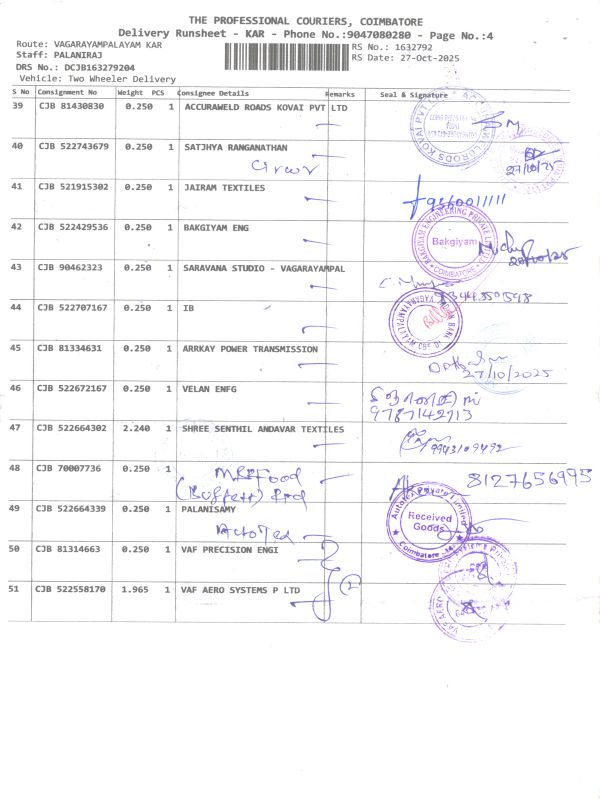 THE PROFESSIONAL COURIERS, COIMBATORE
Delivery Runsheet - KAR - Phone No.:9047080280 - Page No.:4
Route: VAGARAYAMPALAYAM KAR
RS No.: 1632792
Staff: PALANIRAJ
RS Date: 27-Oct-2025
DRS No.: DCJB163279204
Vehicle: Two Wheeler Delivery
S No Consignment No Weight PCS Consignee Details Remarks Seal & Signature
39 CJB 81430830 0.250 1 ACCURAWELD ROADS KOVAI PVT LTD
40 CJB 522743679 0.250 1 SATJHYA RANGANATHAN
27/10/25
41 CJB 521915302 0.250 1 JAIRAM TEXTILES
42 CJB 522429536 0.250 1 BAKGIYAM ENG
BAKGIYAM ENGINEERING PRIVATE LTD
Bakgiyam
COIMBATORE
43 CJB 90462323 0.250 1 SARAVANA STUDIO - VAGARAYAMPAL
44 CJB 522707167 0.250 1 IB
45 CJB 81334631 0.250 1 ARRKAY POWER TRANSMISSION
27/10/2025
46 CJB 522672167 0.250 1 VELAN ENFG
9787142713
47 CJB 522664302 2.240 1 SHREE SENTHIL ANDAVAR TEXTILES
9943109492
48 CJB 70007736 0.250 1
MRF Food
8127656995
49 CJB 522664339 0.250 1 PALANISAMY
Received
Goods
Coimbatore
50 CJB 81314663 0.250 1 VAF PRECISION ENGI
51 CJB 522558170 1.965 1 VAF AERO SYSTEMS P LTD
(2)